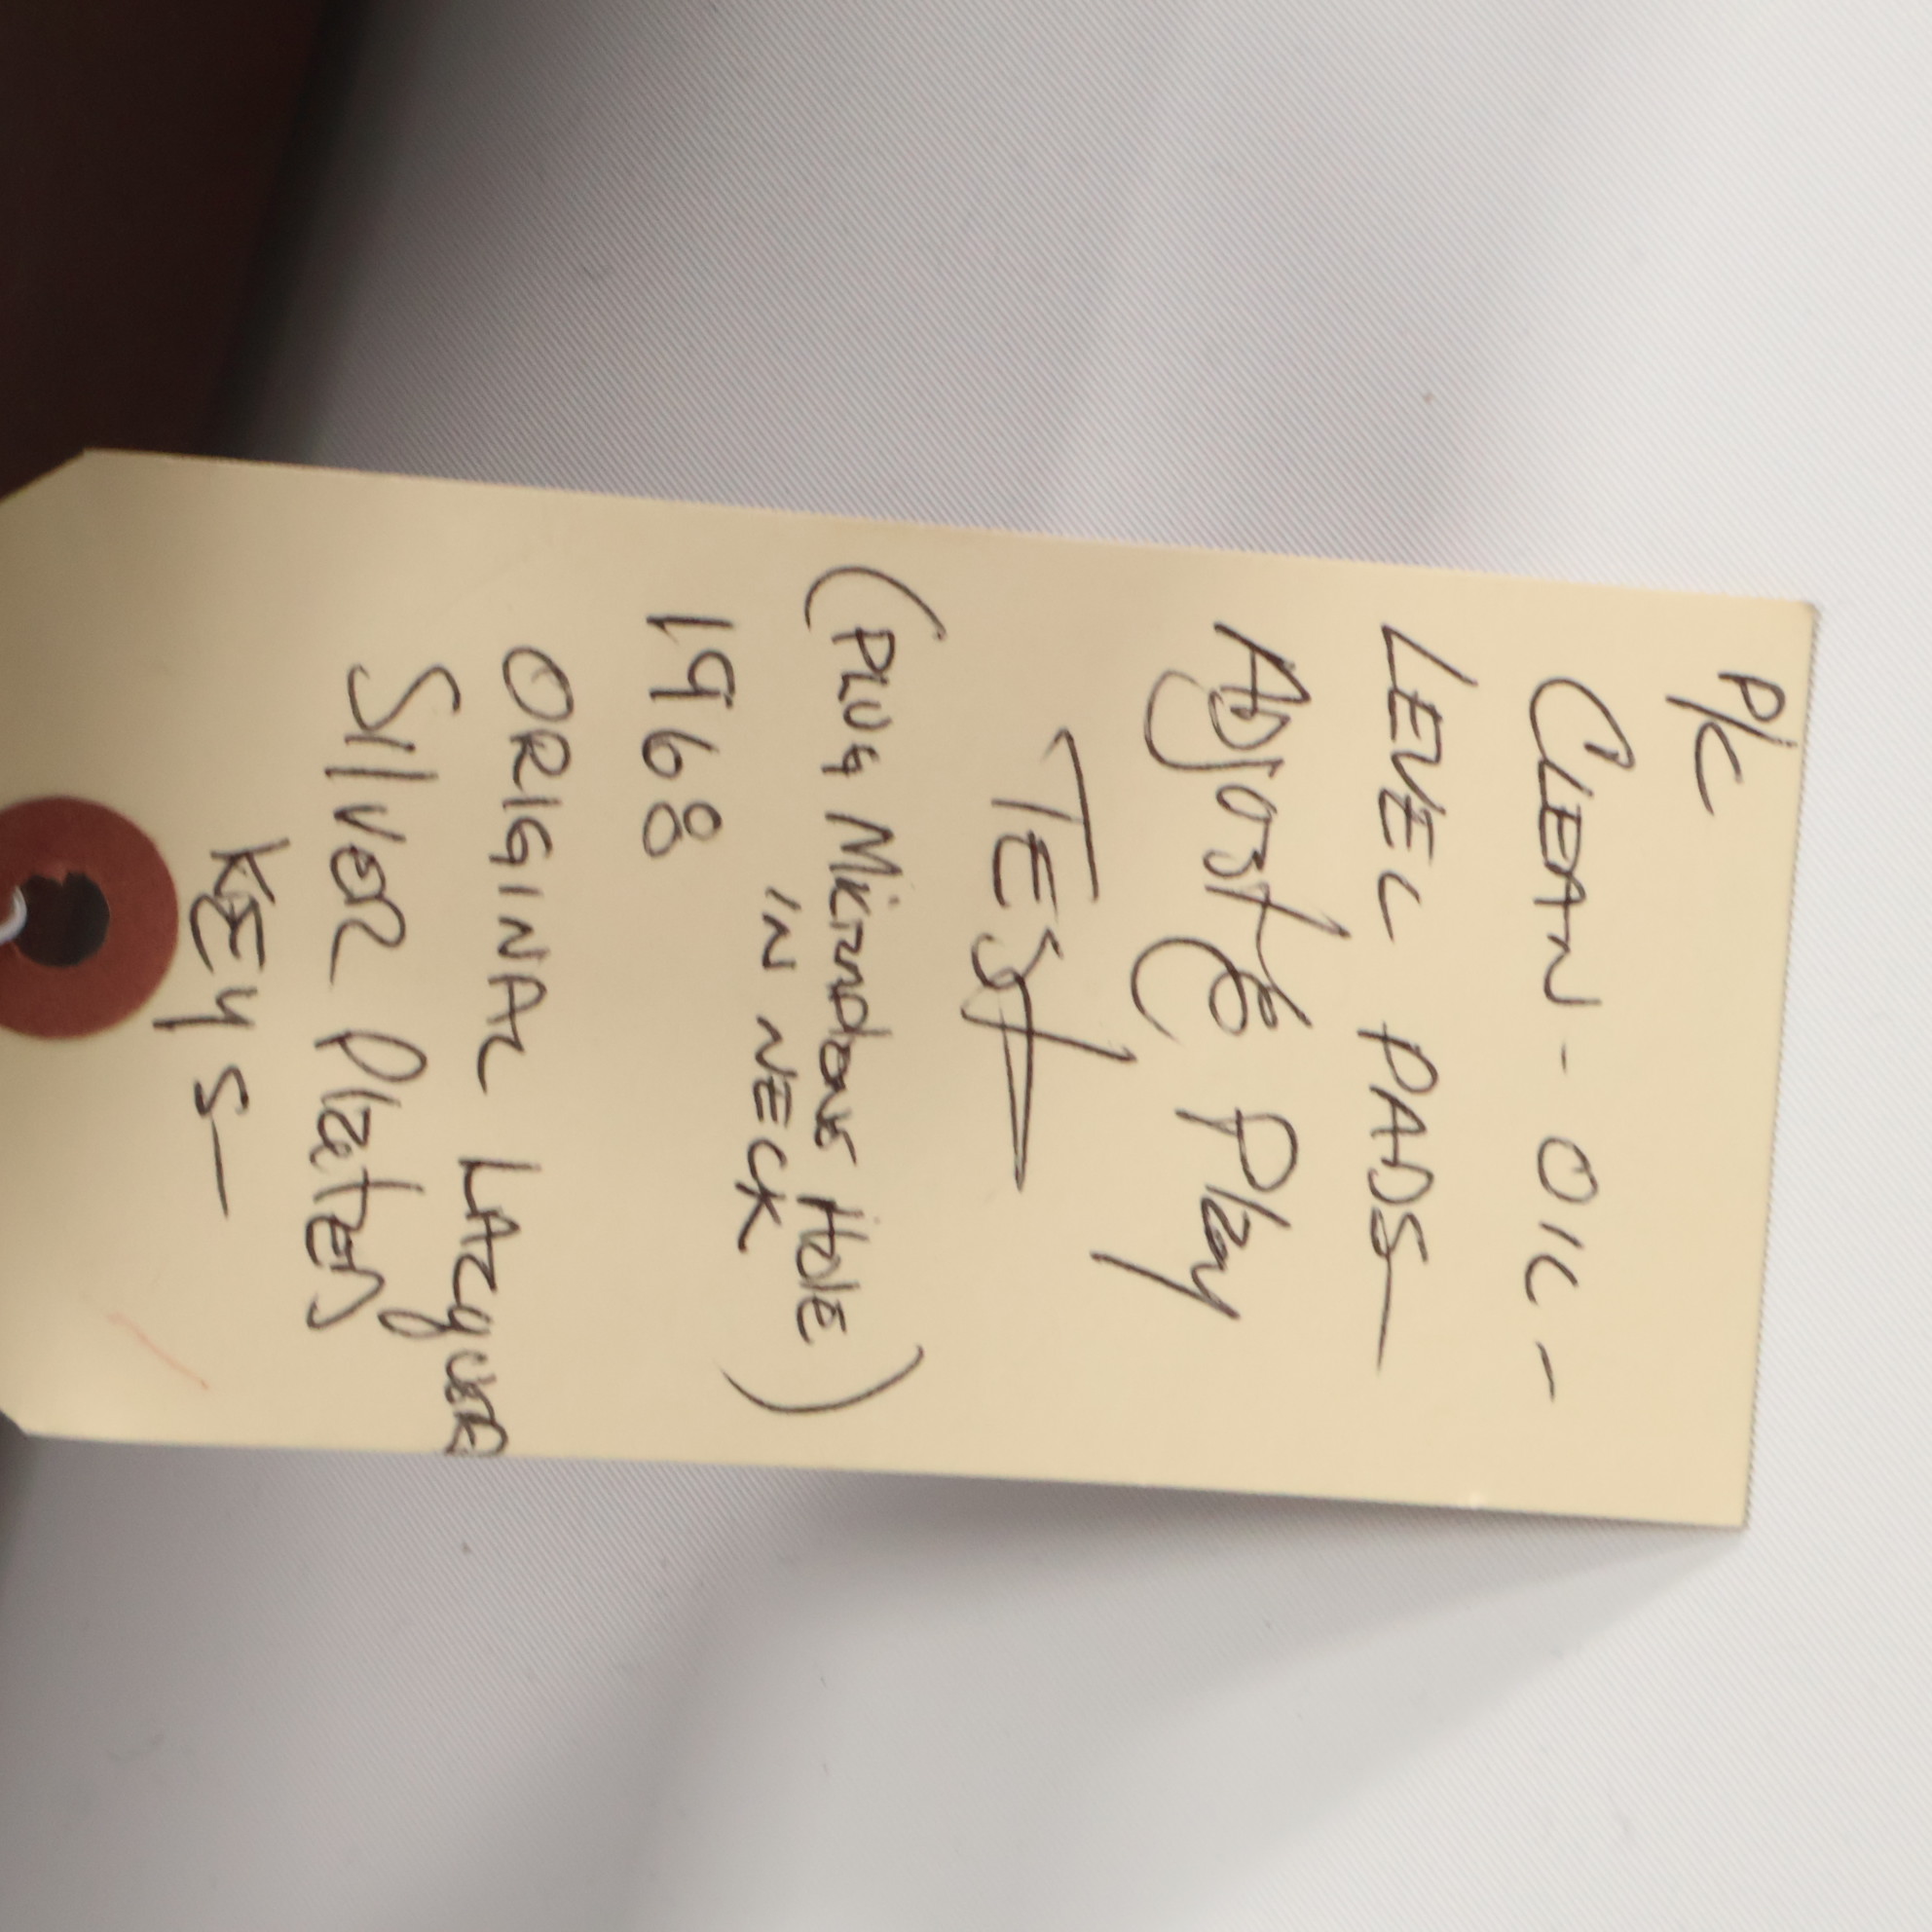 P/C
CLEAN - OIL -
LEVEL PADS -
ADJUST & Play
TEST
(PLUG Microphone Hole
IN NECK)
1968
ORIGINAL LACQUER
SILVER PlatED
KEYS -